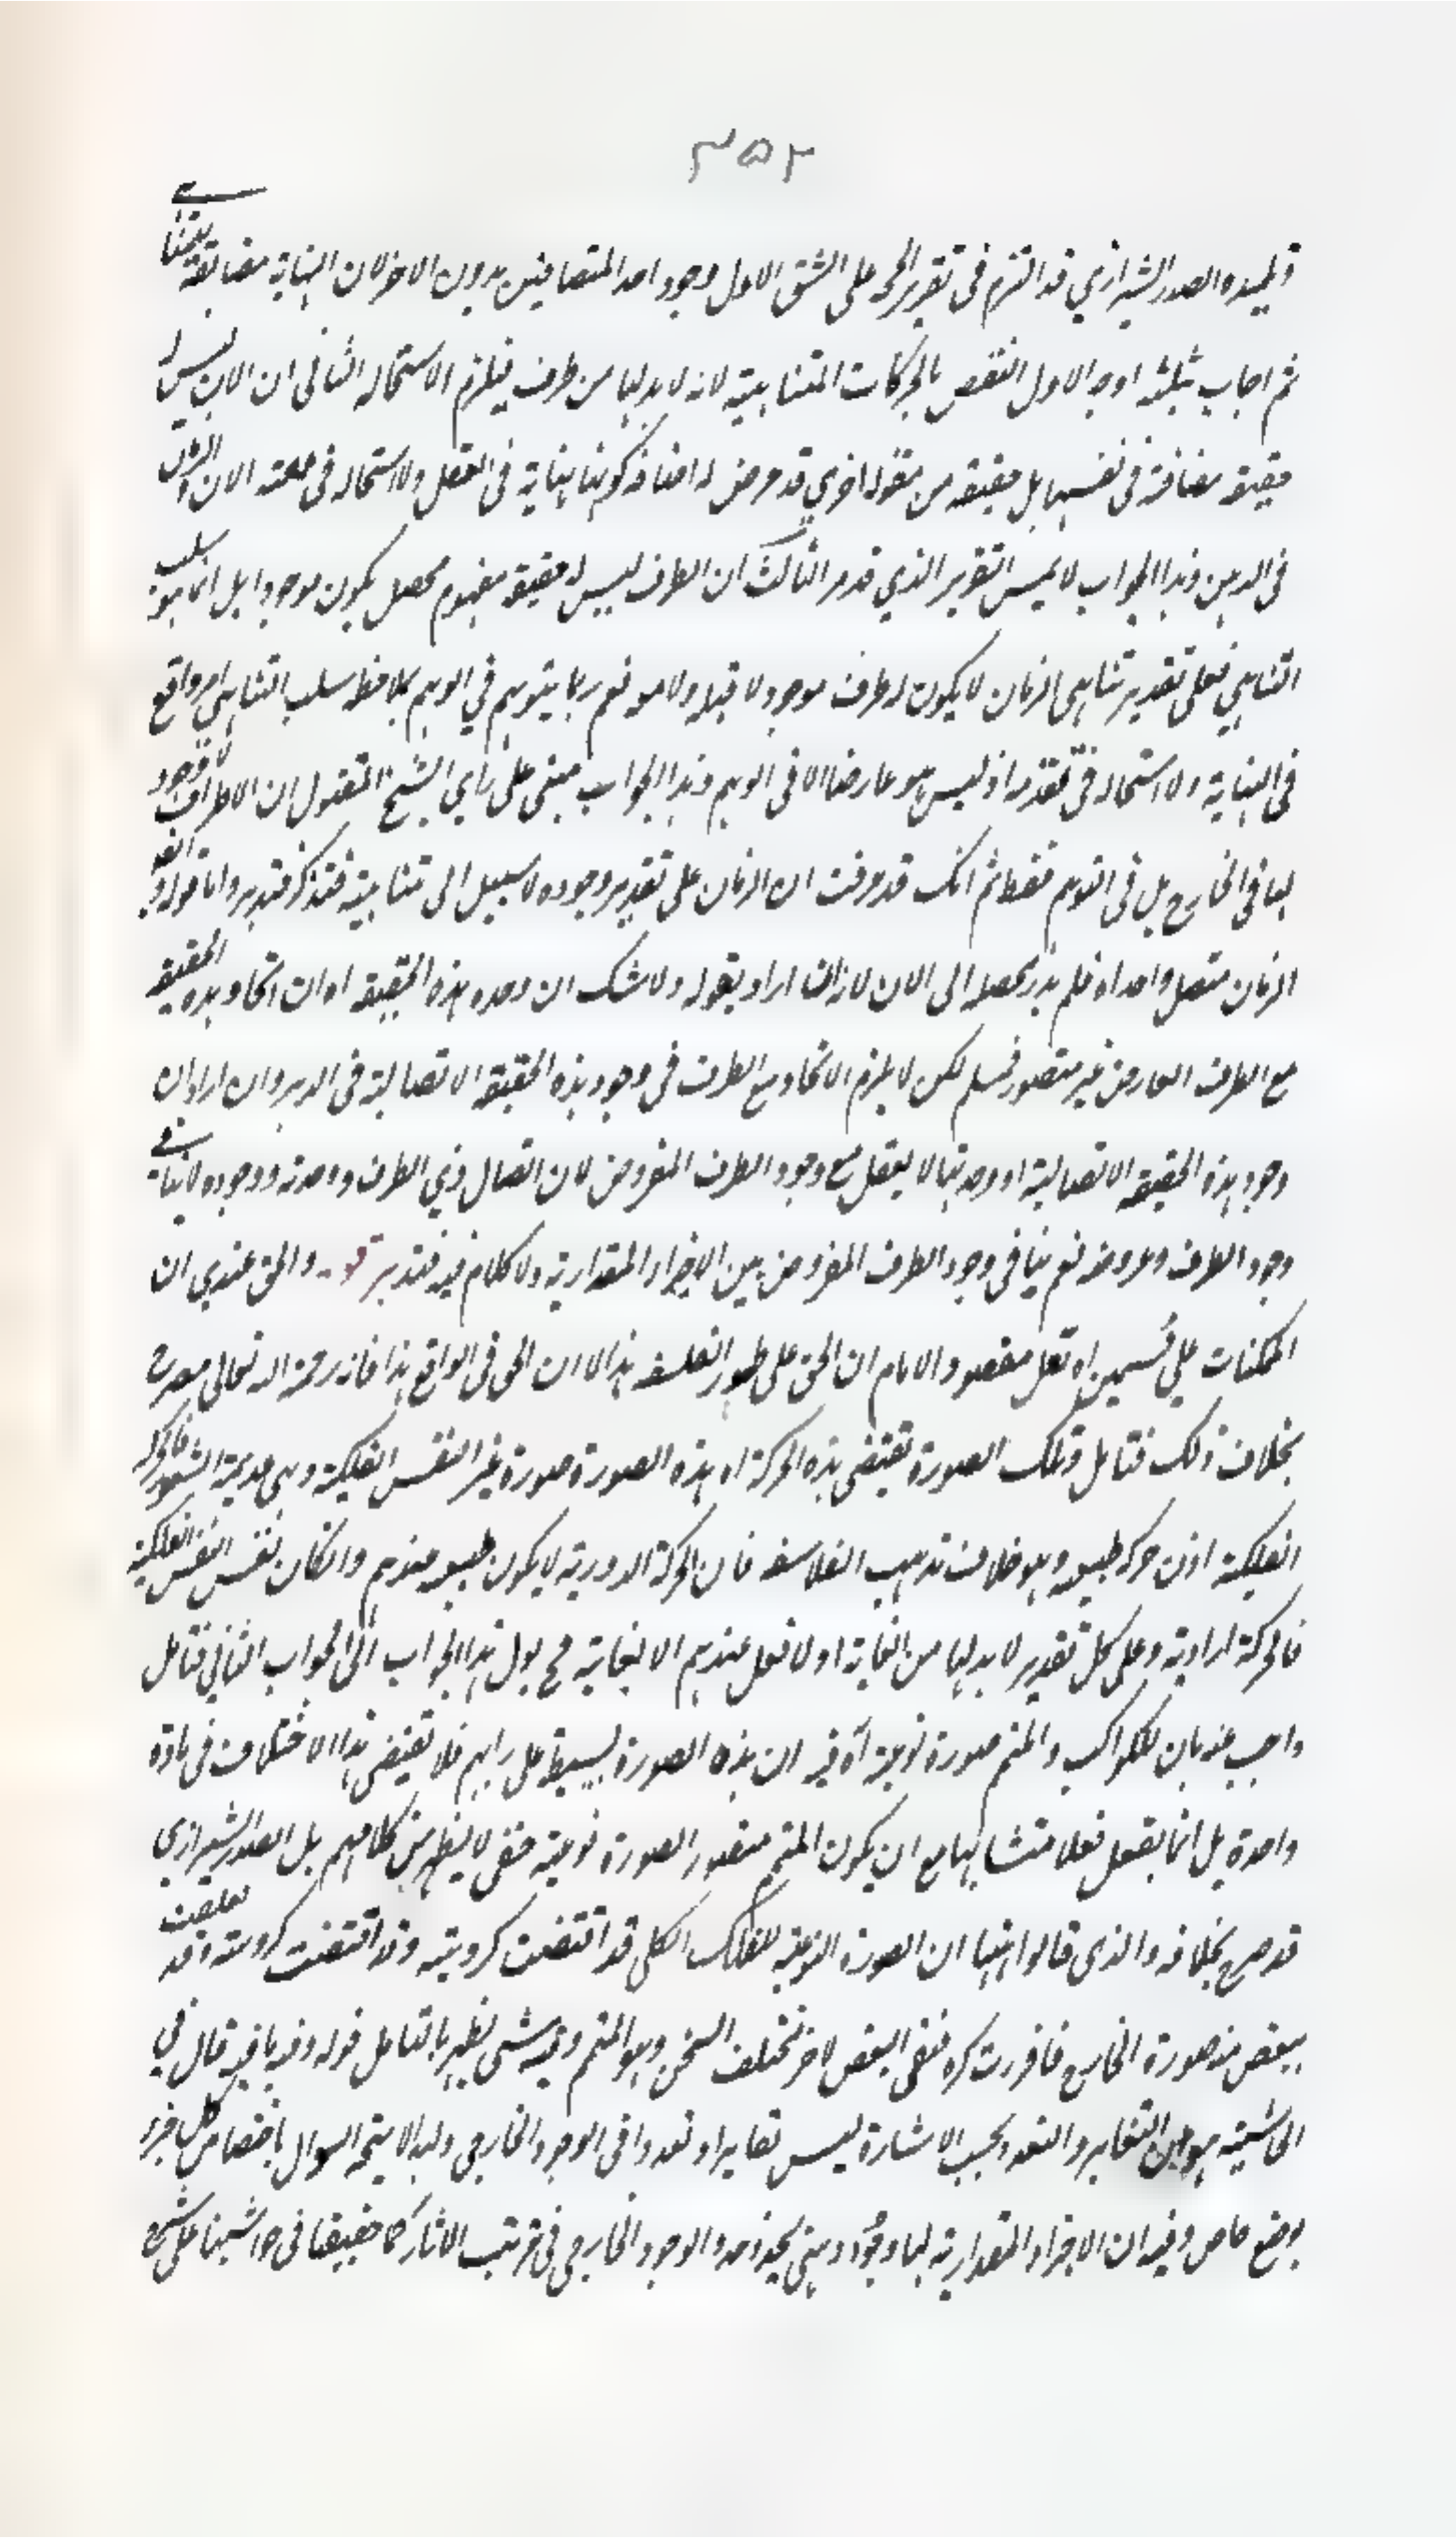 ٣٥٢
تلميذه الصدر الشيرازي قد التزم في تقرير الحجة على الشق الاول وجود احد المتضايفين بدون الاخر لان النهاية مضايفة
ثم اجاب بثلثة اوجه الاول النقض بالحركات المتناهية لانه لا بد لها من طرف فيلزم الاستحالة الثاني ان الان ليس له
حقيقة مضافة في نفسها بل حقيقة من مقولة اخرى قد عرض له اضافة كونها نهاية في العقل ولا استحالة في معية الان
في الذهن وهذا الجواب لا يمس التقرير الذي قدم الثالث ان الطرف ليس له حقيقة مفهوم محصل يكون موجودا بل انما هو سلب
التناهي فعلى تقدير تناهي الزمان لا يكون له طرف موجود لا قبله ولا معه نعم ربما يتوهم في الوهم بملاحظة سلب التناهي امر واقع
في النهاية ولا استحالة في تقدمه اذ ليس هو عارضا الا في الوهم وهذا الجواب مبني على راي الشيخ المقتول ان الاطراف لا وجود
لها في الخارج بل في التوهم فقط ثم انك قد عرفت ان الزمان على تقدير وجوده لا سبيل الى تناهيه فتذكر فتدبر واما قوله
الزمان متصل واحد اه فلم يدر محصله الى الان لانه ان اراد بقوله ولا شك ان وحدة هذه الحقيقة اه ان اتحاد هذه الحقيقة
مع الطرف العارض غير متصور فمسلم لكن لا يلزم الاتحاد مع الطرف في وجود هذه الحقيقة الاتصالية في الدهر وان اراد ان
وجود هذه الحقيقة الاتصالية او وحدتها لا يعقل مع وجود الطرف المفروض لان اتصال ذي الطرف ووحدته ووجوده لا ينافي
وجود الطرف وعروضه نعم ينافي وجود الطرف المفروض بين الاجزاء المقدارية ولا كلام فيه فتدبر قوله والحق عندي ان
الممكنات على قسمين اه لعل مقصود الامام ان الحق على طور الفلسفة هذا لا ان الحق في الواقع هذا فانه رحمه الله تعالى مصرح
بخلاف ذلك فتامل وتلك الصورة تقتضي هذه الحركة اه هذه الصورة صورة غير النفس الفلكية وهي عديمة الشعور فالحركة
الفلكية اذن حركة طبيعية وهو خلاف مذهب الفلاسفة فان الحركة الدورية لا يكون طبيعية عندهم وان كان نفس النفس الفلكية
فالحركة ارادية وعلى كل تقدير لا بد لها من الغاية اذ لا فعل عندهم الا لغاية فح يول هذا الجواب الى الجواب الثاني فتامل
واجيب عنه بان للكواكب والمتمم صورة نوعية اه فيه ان هذه الصورة بسيطة على رايهم فلا تقتضي هذا الاختلاف في مادة
واحدة بل انما يفعل فعلا متشابها مع ان يكون المتمم متصور الصورة نوعية خفي لا يظهر من كلامهم بل الصدر الشيرازي
قد صرح بخلافه والذي قالوا ههنا ان الصورة النوعية للفلك الكلي قد اقتضت كرويته وقد اقتضت كرويته وقد تعلقت
ببعض منه صورة الخارج فافرزت كرة فبقي البعض الاخر مختلف الثخن وهو المتمم وفيه شئ يظهر بالتامل قوله وفيه ما فيه قال في
الحاشية هو ان التغاير والتعدد بحسب الاشارة ليس تغايرا وتعددا في الوجود الخارجي ولهذا لا يتجه السوال باختصاص كل جزء
بوضع خاص وفيه ان الاجزاء المقدارية لها وجود يحذو حذو الوجود الخارجي في ترتب الاثار كما حققنا في حواشينا على شرح